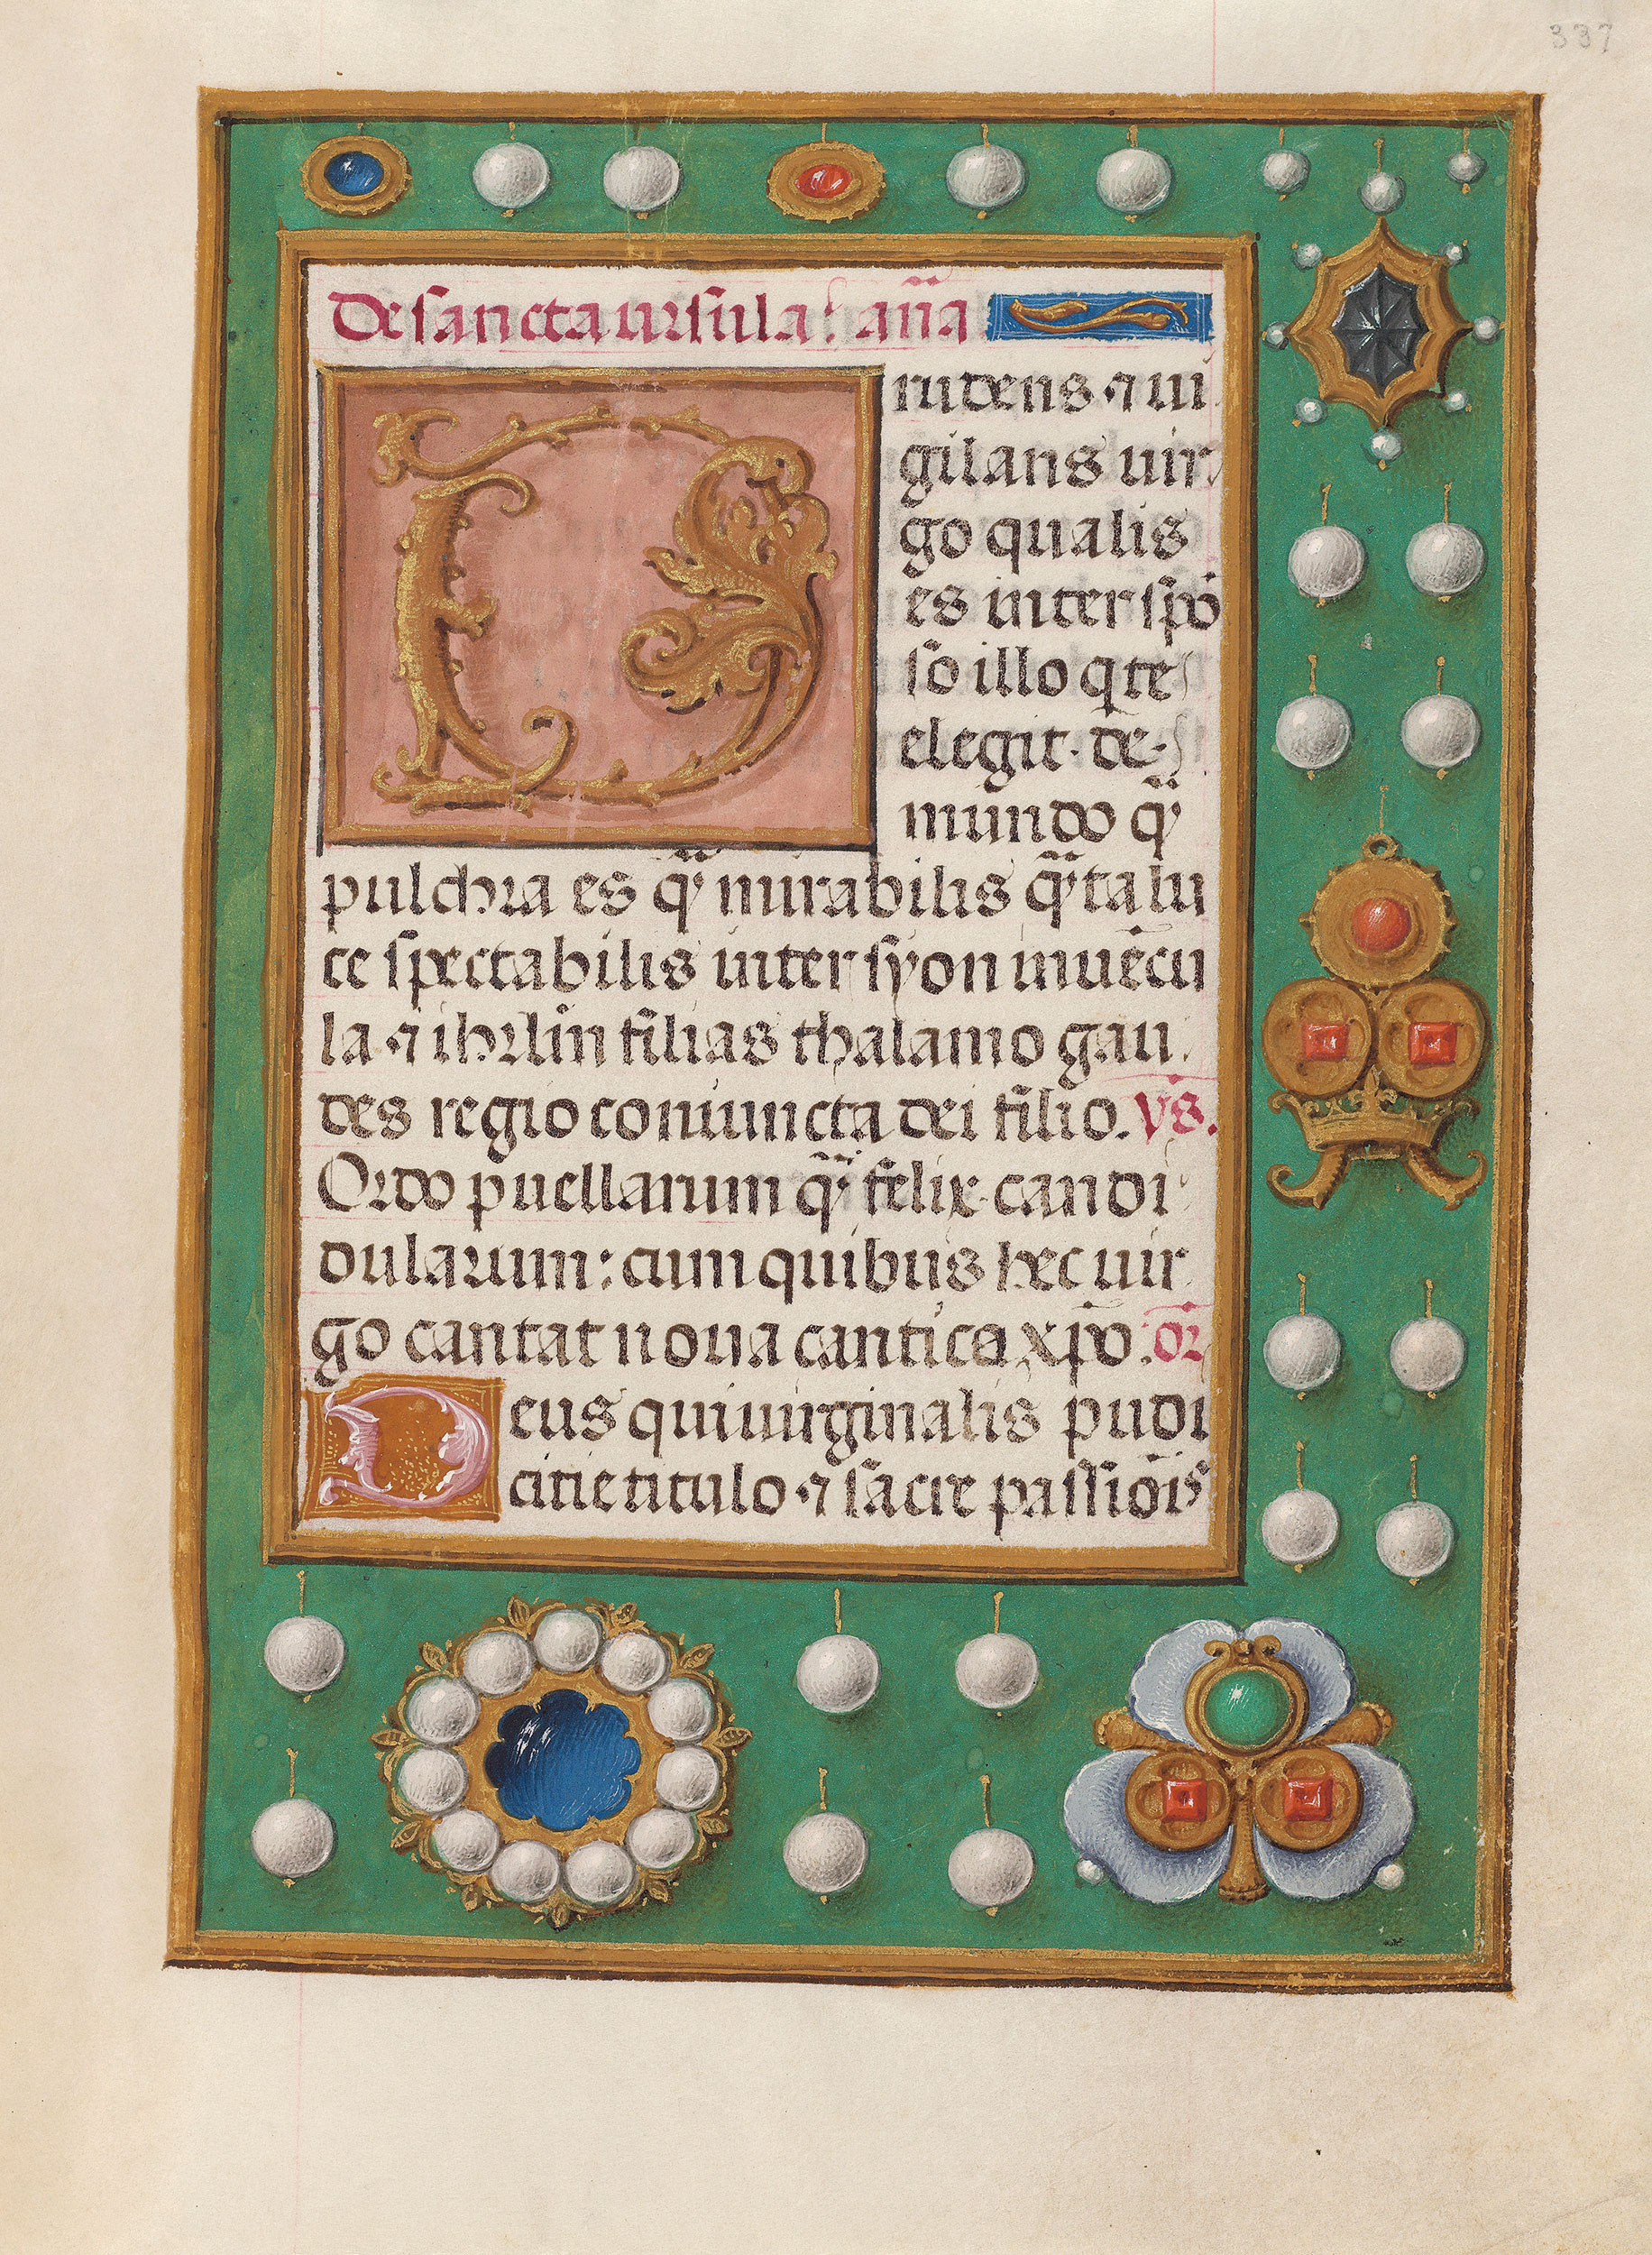 337
De sancta ursula. an̄a
Prudens ⁊ ui
gilans uir
go qualis
es inter spō
so illo q te
elegit. de
mundo q̄
pulchra es q̄ mirabilis q̄ ta lu
ce spectabilis inter syon iuuēcu
la ⁊ ihrlm filias thalamo gau
des regio coniuncta dei filio. vs̄.
Ordo puellarum q̄ felix candi
dularum: cum quibus hec uir
go cantat noua cantica xp̄o. or̄
Deus qui uirginalis pudi
citie titulo ⁊ sacre passiōis